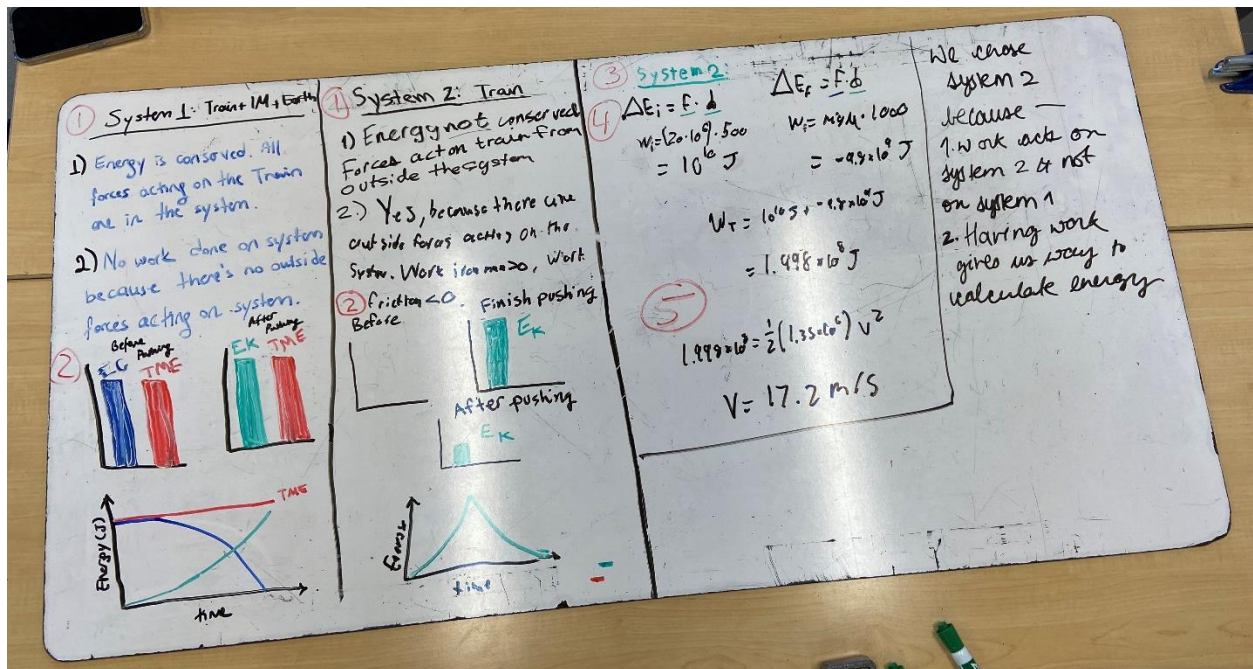 ① System 1: Train + IM + Earth
1) Energy is conserved. All
forces acting on the Train
are in the system.
2) No work done on system
because there's no outside
forces acting on system.
②
Before
Pushing
EC
TME
After
Pushing
EK
TME
Energy (J)
TME
time
① System 2: Train
1) Energy not conserved
Forces act on train from
outside the system
2.) Yes, because there are
outside forces acting on the
System. Work iron man>0, Work
friction <0.
②
Before
Finish pushing
EK
After pushing
EK
Energy
time
③ System 2:
④ ΔEi = f · d
Wi=(20·10⁶)·500
= 10¹⁰ J
ΔEf = f · d
= -9.8x10⁹ J
WT= 10¹⁰ J + -9.8x10⁹ J
= 1.998x10⁸ J
⑤
1.998x10⁸ = ½ (1.35x10⁶) V²
V= 17.2 m/s
We chose
system 2
because —
1. work acts on
system 2 & not
on system 1
2. Having work
gives us way to
calculate energy